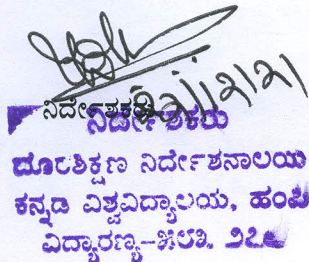 ನಿರ್ದೇಶಕರು
ನಿರ್ದೇಶಕರು
ದೂರಶಿಕ್ಷಣ ನಿರ್ದೇಶನಾಲಯ
ಕನ್ನಡ ವಿಶ್ವವಿದ್ಯಾಲಯ, ಹಂಪಿ
ವಿದ್ಯಾರಣ್ಯ-೫೮೩